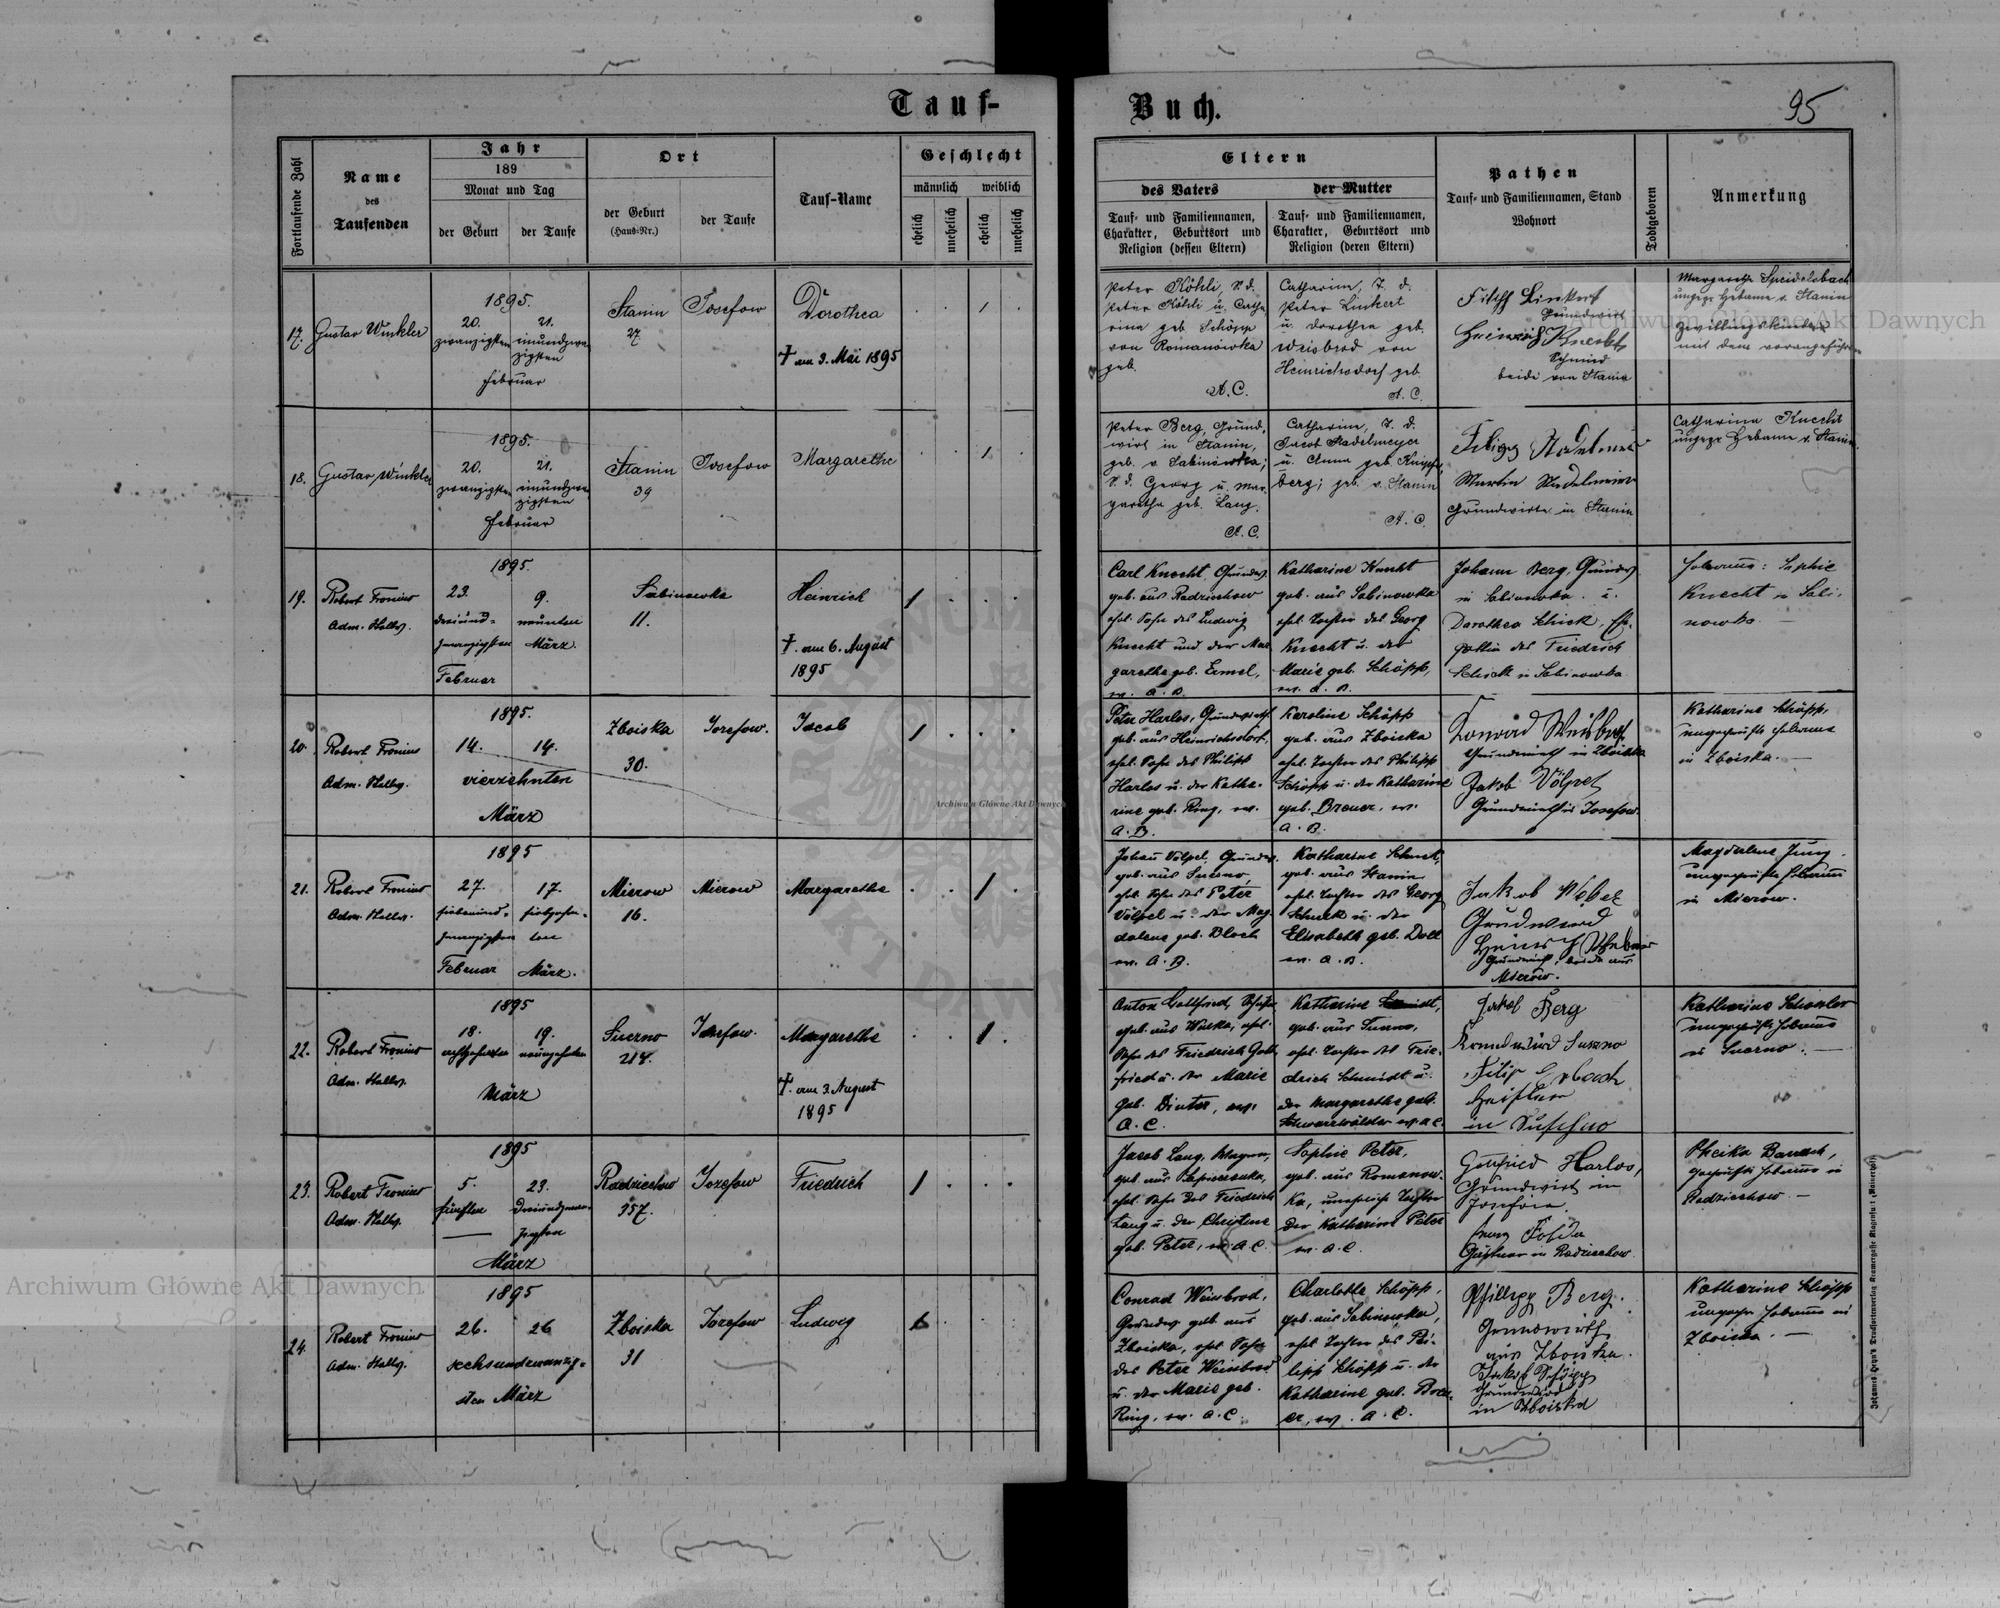 Tauf-
Buch.
95
Fortlaufende Zahl
Name
des
Taufenden
Jahr
189
Monat und Tag
der Geburt
der Taufe
Ort
der Geburt
(Haus-Nr.)
der Taufe
Tauf-Name
Geschlecht
männlich
weiblich
ehelich
unehelich
ehelich
unehelich
Eltern
des Vaters
Tauf- und Familiennamen,
Charakter, Geburtsort und
Religion (dessen Eltern)
der Mutter
Tauf- und Familiennamen,
Charakter, Geburtsort und
Religion (deren Eltern)
Pathen
Tauf- und Familiennamen, Stand
Wohnort
Todtgeboren
Anmerkung
17.
Gustav Winkler
1895.
20.
zwanzigsten
21.
einundzwan
zigsten
Februar
Stanin
27.
Josefow
Dorothea
† am 3. Mai 1895
Peter Köhli, S. d.
Peter Köhli u. Catha
rina geb. Schöpp
von Romanówka
geb.
A. C.
Catharina, T. d.
Peter Linkert
u. Dorothea geb.
Weisbrod von
Heinrichsdorf geb.
A. C.
Grundwirt
Heinrich Knecht
Schmied
beide von Stanin
Margarethe Speidelsbach
ungepr. Hebamme v. Stanin
Zwillingskinder
mit dem vorangeführten
18.
Gustav Winkler
1895.
20.
zwanzigsten
21.
einundzwan
zigsten
Februar
Stanin
39
Josefow
Margarethe
Peter Berg, Grund-
wirt in Stanin,
geb. v. Sabinówka;
S. d. Georg u. Mar-
garetha geb. Lang.
A. C.
Catharina, T. d.
Jacob Stadelmeyer
u. Anna geb. Knipp
berg; geb. v. Stanin
A. C.
Martin Stadelmeier
Grundwirte in Stanin
Catharina Knecht
ungepr. Hebamme v. Stanin
19.
Robert Fronius
Adm. Hellv.
1895.
23.
dreiund-
zwanzigsten
Februar
9.
neunten
März.
Sabinowka
11.
Heinrich
†. am 6. August
1895
1
Carl Knecht, Grundw.
geb. aus Radziechow
ehel. Sohn des Ludwig
Knecht und der Mar
garethe geb. Ermel,
ev. A. B.
Katharine Knecht
geb. aus Sabinowka
ehel. Tochter des Georg
Knecht u. der
Marie geb. Schöpp,
ev. A. B.
Johann Berg, Grundw.
in Sabinowka. u.
Dorothea Schick, Eh-
gattin des Friedrich
Schick in Sabinowka
Hebamme: Sophie
Knecht in Sabi-
nowka. —
20.
Robert Fronius
Adm. Hellv.
1895.
14.
14.
vierzehnten
März
Zboiska
30.
Josefow.
Jacob
1
Peter Harlos, Grundwirth
geb. aus Heinrichsdorf,
ehel. Sohn des Philipp
Harlos u. der Katha-
rine geb. Ring, ev.
A. B.
Karoline Schöpp
geb. aus Zboiska
ehel. Tochter des Philipp
Schöpp u. der Katharine
geb. Breuer, ev.
A. B.
Konrad Weisbrod
Grundwirth in Zboiska
Jakob Völpel
Grundwirth in Josefow.
Katharine Schöpp,
ungeprüfte Hebamme
in Zboiska. —
21.
Robert Fronius
Adm. Hellv.
1895
27.
siebenund-
zwanzigsten
Februar
17.
siebzehn-
ten
März.
Mierow
16.
Mierow
Margarethe
1
Johann Völpel, Grundw.
geb. aus Suszno,
ehel. Sohn des Peter
Völpel u. der Mag
dalene geb. Bloch
ev. A. B.
Katharine Schneck,
geb. aus Stanin
ehel. Tochter des Georg
Schneck u. der
Elisabeth geb. Doll
ev. A. B.
Jakob Weber
Grundwirth, beide aus
Mierow.
Magdalene Jung,
ungeprüfte Hebamme
in Mierow.
22.
Robert Fronius
Adm. Hellv.
1895
18.
achtzehnten
19.
neunzehnten
März
Suszno
218.
Josefow.
Margarethe
†. am 3. August
1895
1
Anton Gottfried,
ehel.
Sohn des Friedrich Gott
fried u. der Marie
geb. Dinter, ev.
A. C.
Katharine Schmidt,
geb. aus
ehel. Tochter des Frie-
drich Schmidt u.
der Margarethe geb.
Schwarzwälder ev. A. C.
Jakob Berg
Filip Erbach
Katharine Schindler
ungeprüfte Hebamme
in Suszno. —
23.
Robert Fronius
Adm. Hellv.
1895
5.
fünften
—
23.
dreiundzwan-
zigsten
März
Radziechow
357.
Josefow
Friedrich
1
Jacob Lang, Wagner,
ehel. Sohn des Friedrich
Lang u. der Christine
geb. Peter, ev. A. C.
Sophie Peter,
geb. aus Romanow-
ka, uneheliche Tochter
der Katharine Peter
ev. A. C.
Gottfried Harlos,
Grundwirt in
in Radziechow.
geprüfte Hebamme in
Radziechow. —
24.
Robert Fronius
Adm. Hellv.
1895
26.
26
sechsundzwanzig-
sten März
Zboiska
31
Josefow
Ludwig
Conrad Weissbrod,
Grundw. geb. aus
Zboiska, ehel. Sohn
des Peter Weissbrod
u. der Marie geb.
Ring, ev. A. C.
Charlotte Schöpp,
geb. aus Sabinowka,
ehel. Tochter des Phi-
lipp Schöpp u. der
Katharine geb. Breu-
er, ev. A. C.
Phillipp Berg.
Grundwirth
aus Zboiska.
Jakob Schöpp
Grundwirth
in Zboiska
Katharine Schöpp
ungepr. Hebamme in
Zboiska. —
Archiwum Główne Akt Dawnych
Archiwum Główne Akt Dawnych
Archiwum Główne Akt Dawnych